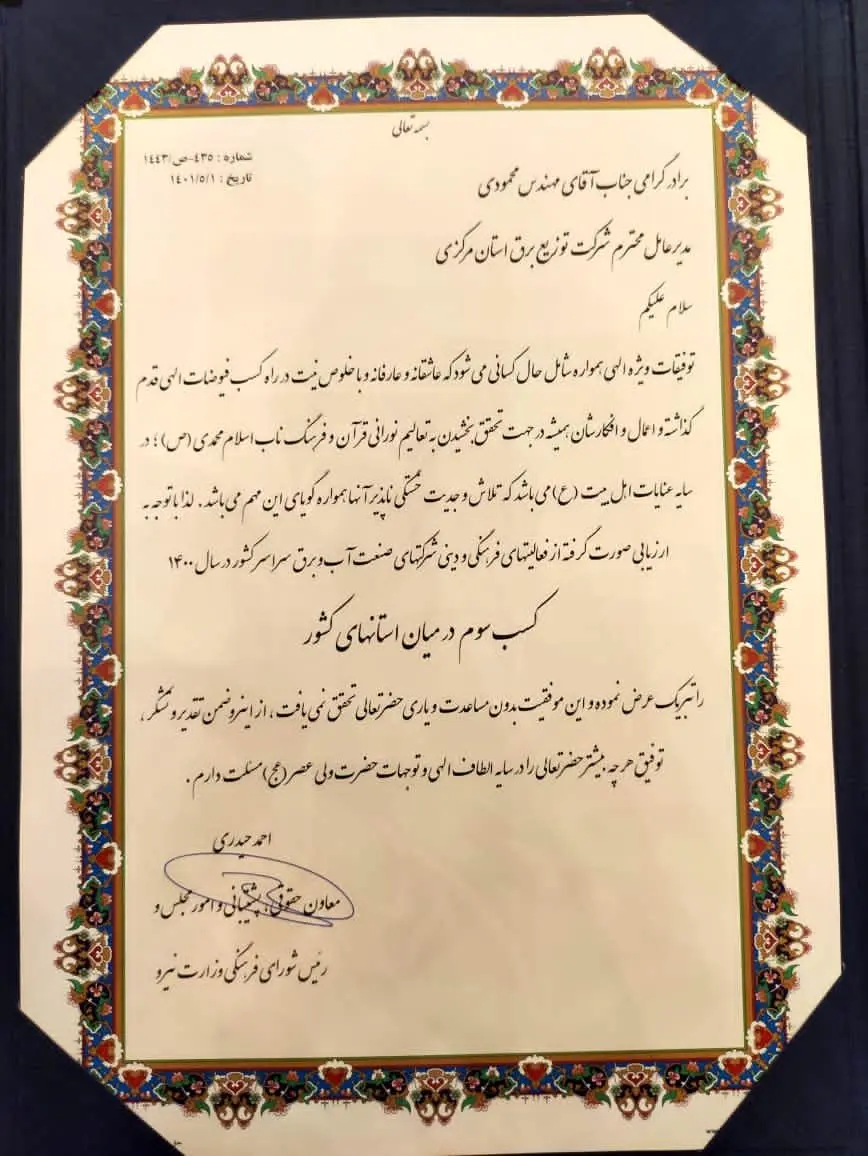 بسمه تعالی
شماره : ۴۳۵-ص/۱۴۴۳
تاریخ : ۱۴۰۱/۵/۱
برادر گرامی جناب آقای مهندس محمودی
مدیرعامل محترم شرکت توزیع برق استان مرکزی
سلام علیکم
توفیقات ویژه الهی همواره شامل حال کسانی می شود که عاشقانه و عارفانه و با خلوص نیت در راه کسب فیوضات الهی قدم
گذاشته و اعمال و افکارشان همیشه در جهت تحقق بخشیدن به تعالیم نورانی قرآن و فرهنگ ناب اسلام محمدی (ص) ؛ در
سایه عنایات اهل بیت (ع) می باشد که تلاش و جدیت خستگی ناپذیر آنها همواره گویای این مهم می باشد . لذا با توجه به
ارزیابی صورت گرفته از فعالیتهای فرهنگی و دینی شرکتهای صنعت آب و برق سراسر کشور در سال ۱۴۰۰
کسب سوم در میان استانهای کشور
را تبریک عرض نموده و این موفقیت بدون مساعدت و یاری حضرتعالی تحقق نمی یافت ، از اینرو ضمن تقدیر و تشکر ،
توفیق هر چه بیشتر حضرتعالی را در سایه الطاف الهی و توجهات حضرت ولی عصر (عج) مسئلت دارم .
احمد حیدری
معاون حقوقی، پشتیبانی و امور مجلس و
رئیس شورای فرهنگی وزارت نیرو